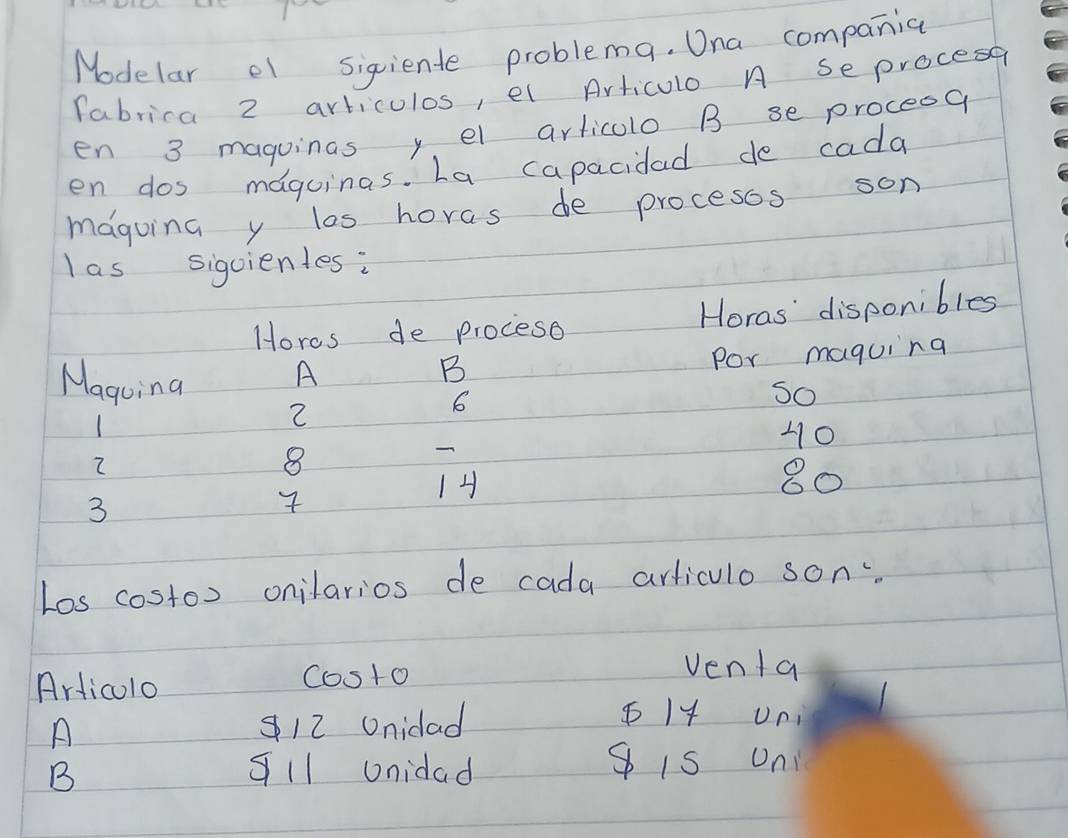 Modelar el siguiente problema. Una compañia
fabrica 2 articulos, el Articulo A se procesa
en 3 maquinas y el articulo B se procesa
en dos máquinas. La capacidad de cada
máquina y las horas de procesos son
las siguientes:
Horas de proceso Horas disponibles
Maquina A B Por maquina
1 2 6 50
2 8 - 40
3 7 14 80
Los costos unitarios de cada articulo son:
Articulo costo venta
A $12 unidad $ 17
B $11 unidad $ 15